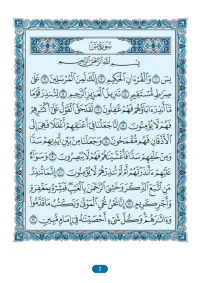 سورة يس
بسم الله الرحمن الرحيم
يس ۝ والقرءان الحكيم ۝ إنك لمن المرسلين ۝ على
صراط مستقيم ۝ تنزيل العزيز الرحيم ۝ لتنذر قوما
ما أنذر ءاباؤهم فهم غافلون ۝ لقد حق القول على أكثرهم
فهم لا يؤمنون ۝ إنا جعلنا في أعناقهم أغلالا فهي إلى
الأذقان فهم مقمحون ۝ وجعلنا من بين أيديهم سدا
ومن خلفهم سدا فأغشيناهم فهم لا يبصرون ۝ وسواء
عليهم ءأنذرتهم أم لم تنذرهم لا يؤمنون ۝ إنما تنذر
من اتبع الذكر وخشي الرحمن بالغيب فبشره بمغفرة
وأجر كريم ۝ إنا نحن نحي الموتى ونكتب ما قدموا
وءاثارهم وكل شيء أحصيناه في إمام مبين ۝
2